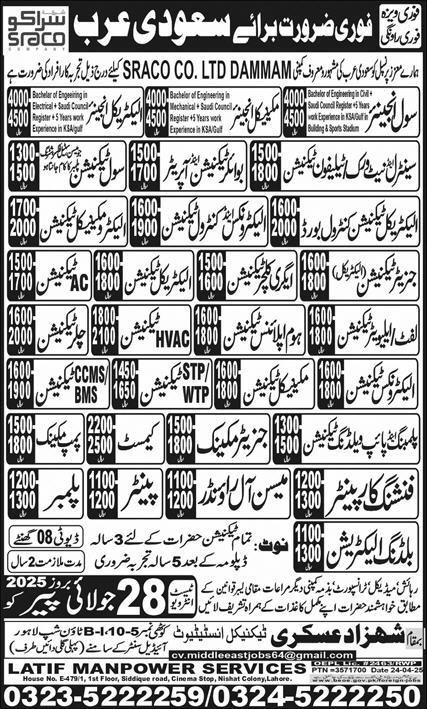 فوری ویزہ
فوری روانگی
فوری ضرورت برائے سعودی عرب
سراکو
SRACO
COMPANY
ہمارے معزز پرنسپل کو سعودی عرب کی مشہور و معروف کمپنی SRACO CO. LTD DAMMAM کیلئے درج ذیل تجربہ کار افراد کی ضرورت ہے
سول انجینئر
Bachelor of Engineering in Civil +
Saudi Council Register +5 Years
work Experience in KSA/gulf in
Building & Sports Stadium
4000
4500
ریال
مکینیکل انجینئر
Bachelor of Engineering in
Mechanical + Saudi Council
Register +5 Years work
Experience in KSA/Gulf
4000
4500
ریال
الیکٹریکل انجینئر
Bachelor of Engeering in
Electrical + Saudi Council
Register +5 Years work
Experience in KSA/Gulf
4000
4500
ریال
سینٹرل سیٹ ورک/ٹیلیفون ٹیکنیشن 1500 1800 ریال
بوائلر ٹیکنیشن اینڈ آپریٹر 1500 1700 ریال
سول ٹیکنیشن 1300 1500 ریال
الیکٹریکل ٹیکنیشن کنٹرول بورڈ 1600 2000 ریال
الیکٹرونکس اینڈ کنٹرول ٹیکنیشن 1600 1900 ریال
الیکٹرو مکینیکل ٹیکنیشن 1700 2000 ریال
جنریٹر ٹیکنیشن (الیکٹریکل) 1600 1800 ریال
ایگری کلچر ٹیکنیشن 1500 1600 ریال
الیکٹریکل ٹیکنیشن 1600 1800 ریال
AC ٹیکنیشن 1500 1700 ریال
لفٹ/ایلیویٹر ٹیکنیشن 1600 1800 ریال
ہوم اپلائنس ٹیکنیشن 1600 1800 ریال
HVAC ٹیکنیشن 1800 2100 ریال
چلر ٹیکنیشن 1600 2000 ریال
الیکٹرونکس ٹیکنیشن 1600 1800 ریال
مکینیکل ٹیکنیشن 1600 1800 ریال
STP/WTP ٹیکنیشن 1450 1650 ریال
CCMS/BMS ٹیکنیشن 1600 1900 ریال
پلمبنگ اینڈ پائپ ویلڈنگ ٹیکنیشن 1300 1500 ریال
جنریٹر مکینک 1500 1800 ریال
کیمسٹ 2200 2500 ریال
پمپ مکینک 1500 1800 ریال
فنشنگ کارپینٹر 1200 1300 ریال
میسن آل راؤنڈر 1100 1200 ریال
پینٹر 1100 1200 ریال
پلمبر 1200 1300 ریال
بلڈنگ الیکٹریشن 1100 1300 ریال
نوٹ: تمام ٹیکنیشن حضرات کے لئے 3 سالہ
ڈپلومہ کے بعد 5 سالہ تجربہ ضروری
ڈیوٹی 08 گھنٹے
مدت ملازمت 2 سال
رہائش/میڈیکل/ٹرانسپورٹ بذمہ کمپنی دیگر مراعات مقامی لیبر قوانین کے
مطابق خواہشمند حضرات اپنے مکمل کاغذات کے ہمراہ تشریف لائیں
ٹیسٹ
انٹرویو
28 جولائی بروز پیر 2025 کو
بمقام شہزاد عسکری ٹیکنیکل انسٹیٹیوٹ کوٹھی نمبر 5-10-B-I ٹاؤن شپ لاہور
cv.middleeastjobs64@gmail.com
LATIF MANPOWER SERVICES
House No. E-479/1, 1st Floor, Siddique road, Cinema Stop, Nishat Colony, Lahore.
OEPL Lic. #2463/RWP
PTN =3571700 Date 24-04-25
www.beoe.gov.pk/foreign-jobs
0323-5222259/0324-5222250